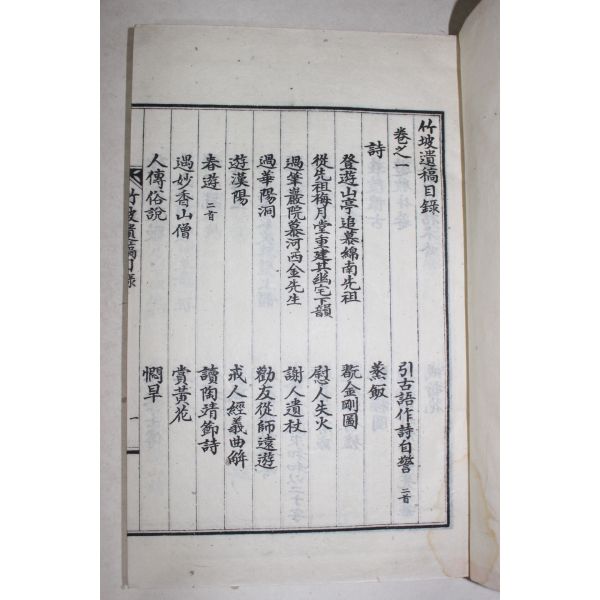 竹坡遺稿目錄
卷之一
詩
登遊山亭追慕綿南先祖
從先祖梅月堂重建其宅下韻
過筆巖院慕河西金先生
過華陽洞
遊漢陽
春遊 二首
遇妙香山僧
人傳俗說
引古語作詩自警 二首
蒸飯
翫金剛圖
慰人失火
謝人遺杖
勸友從師遠遊
戒人經義曲解
讀陶靖節詩
賞黃花
憫旱
竹坡遺稿目錄
一